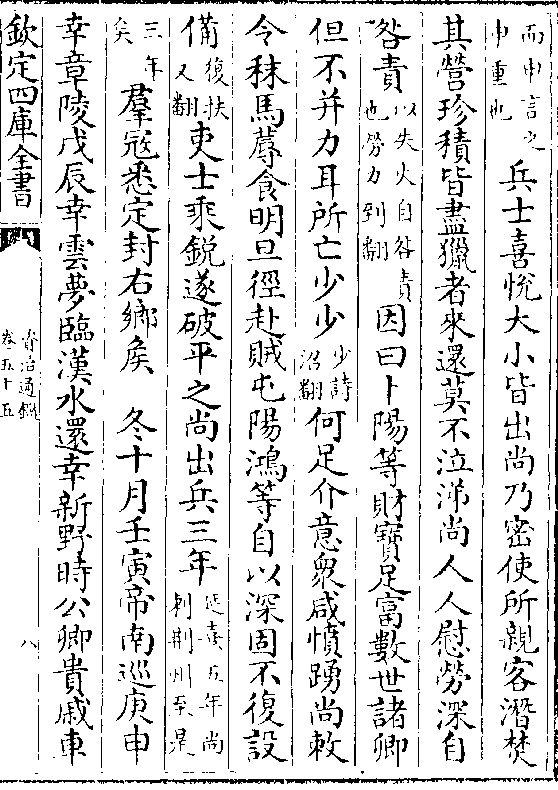 而申言之
申重也
兵士喜悅大小皆出尚乃密使所親客潛焚
其營珍積皆盡獵者來還莫不泣涕尚人人慰勞深自
咎責
以失火自咎責
也勞力到翻
因曰卜陽等財寶足富數世諸卿
但不并力耳所亡少少
少詩
沼翻
何足介意衆咸憤踴尚敕
令秣馬蓐食明旦徑赴賊屯陽鴻等自以深固不復設
備
復扶
又翻
吏士乘鋭遂破平之尚出兵三年
延熹五年尚
刺荆州至是
三年
矣
羣寇悉定封右鄉矦 冬十月壬寅帝南巡庚申
幸章陵戊辰幸雲夢臨漢水還幸新野時公卿貴戚車
欽定四庫全書
資治通鑑
卷五十五
八